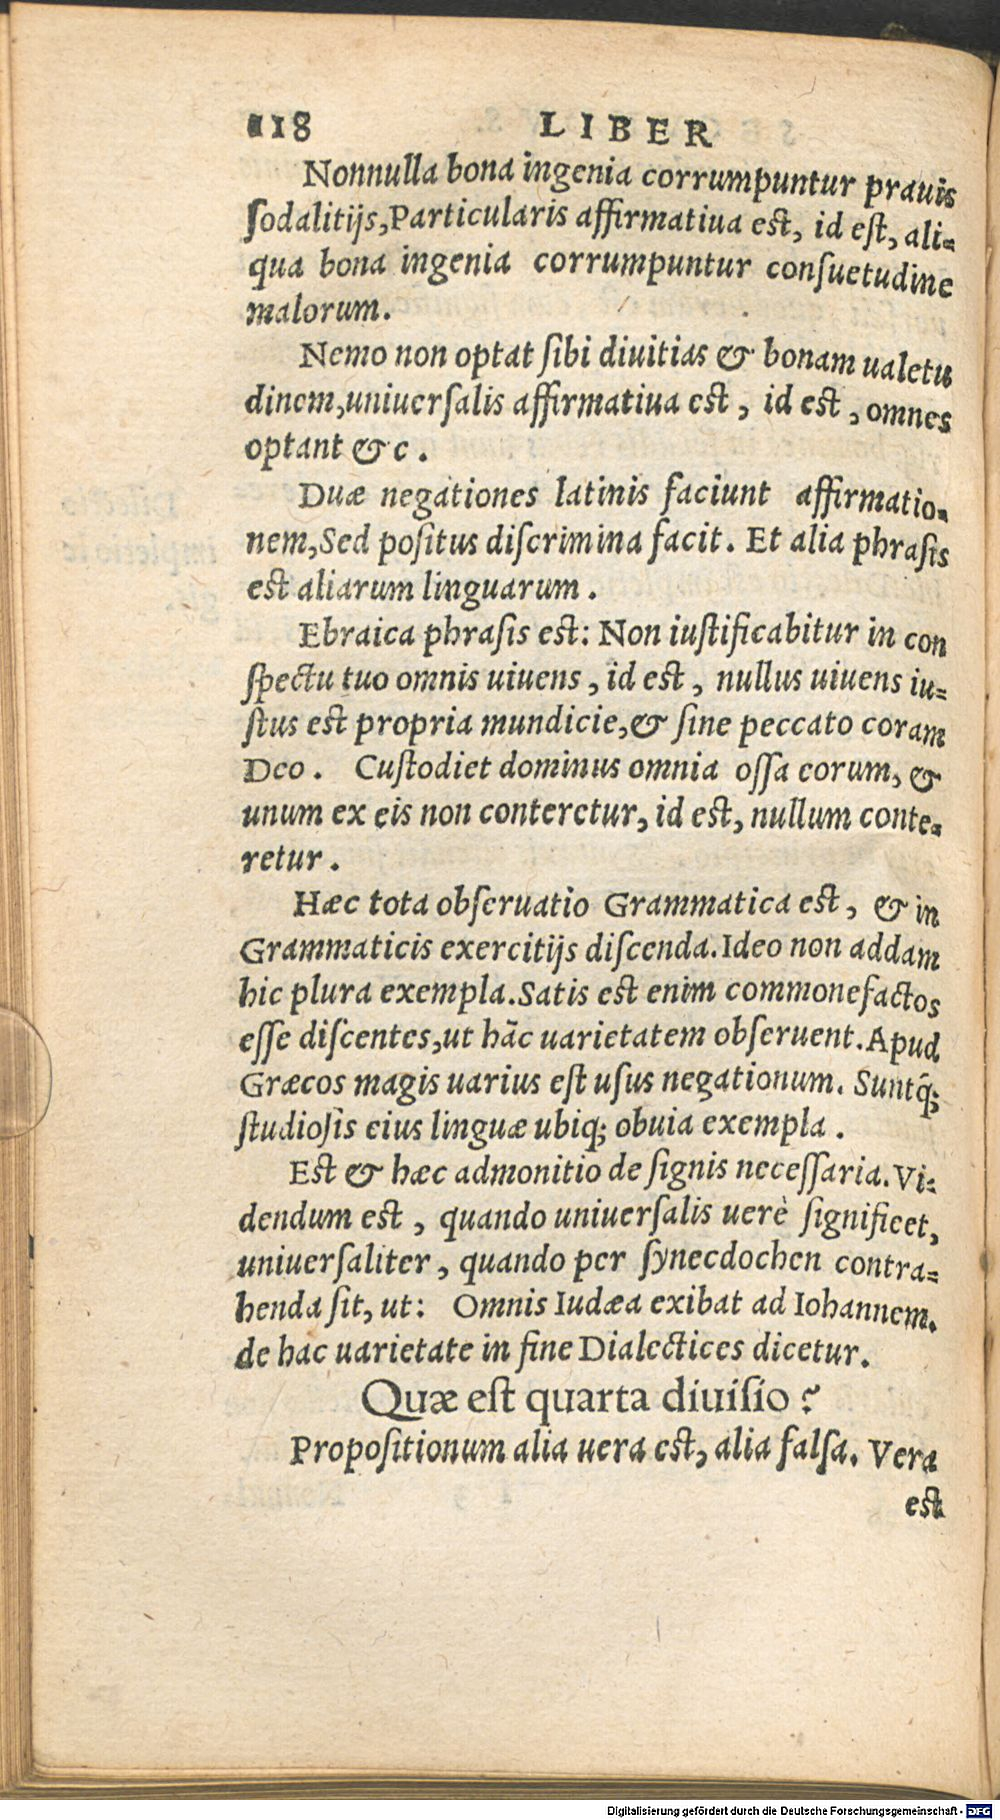 118 LIBER
Nonnulla bona ingenia corrumpuntur prauis
sodalitijs,Particularis affirmatiua est, id est, ali-
qua bona ingenia corrumpuntur consuetudine
malorum.
Nemo non optat sibi diuitias & bonam ualetu
dinem,uniuersalis affirmatiua est, id est, omnes
optant &c.
Duæ negationes latinis faciunt affirmatio-
nem,Sed positus discrimina facit. Et alia phrasis
est aliarum linguarum.
Ebraica phrasis est: Non iustificabitur in con
spectu tuo omnis uiuens, id est, nullus uiuens iu-
stus est propria mundicie,& sine peccato coram
Deo. Custodiet dominus omnia ossa eorum, &
unum ex eis non conteretur, id est, nullum conte-
retur.
Hæc tota obseruatio Grammatica est, & in
Grammaticis exercitijs discenda. Ideo non addam
hic plura exempla. Satis est enim commonefactos
esse discentes,ut hãc uarietatem obseruent. Apud
Græcos magis uarius est usus negationum. Suntq̃;
studiosis eius linguæ ubiq; obuia exempla.
Est & hæc admonitio de signis necessaria. Vi-
dendum est, quando uniuersalis uerè significet,
uniuersaliter, quando per synecdochen contra-
henda sit, ut: Omnis Iudæa exibat ad Iohannem.
de hac uarietate in fine Dialectices dicetur.
Quæ est quarta diuisio?
Propositionum alia uera est, alia falsa. Vera
est
Digitalisierung gefördert durch die Deutsche Forschungsgemeinschaft - DFG